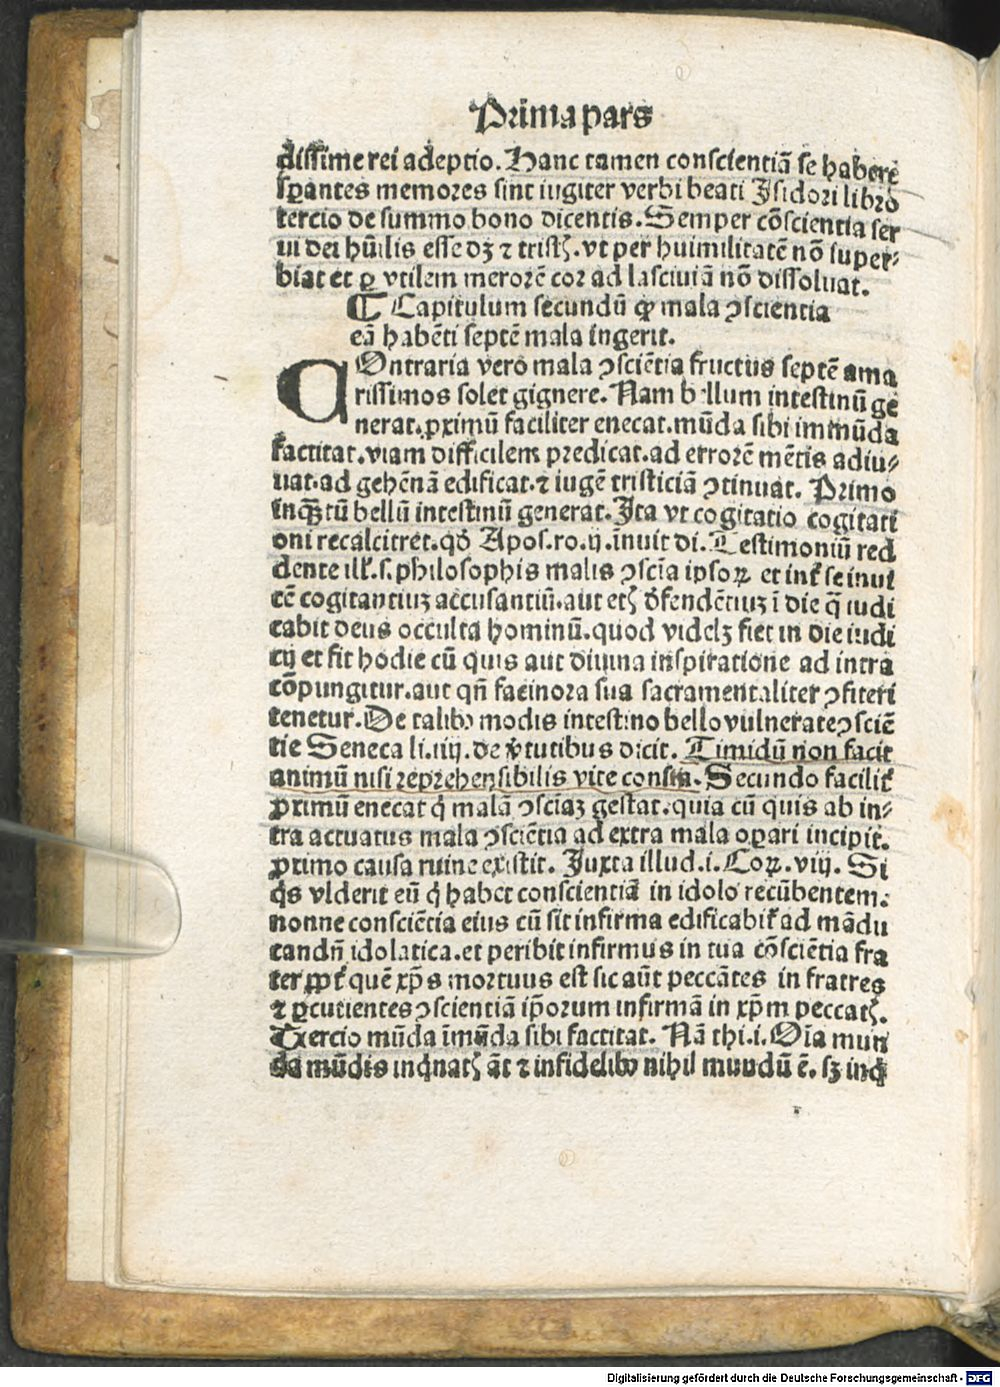 Prima pars
dissime rei adeptio. Hanc tamen conscientiā se habere
sꝑantes memores sint iugiter verbi beati Isidori libro
tercio de summo bono dicentis. Semper cōscientia ser
ui dei hūilis esse dꝫ ⁊ tristꝭ. vt per huimilitatē nō super⸗
biat et ꝑ vtilem merorē cor ad lasciuiā nō dissoluat.
¶ Capitulum secundū ꝙ mala ↄscientia
eā habēti septē mala ingerit.
COntraria vero mala ↄsciētia fructus septē ama
rissimos solet gignere. Nam bellum intestinū ge
nerat. ꝓximū faciliter enecat. mūda sibi immūda
factitat. viam difficilem predicat. ad errorē mētis adiu⸗
uat. ad gehēnā edificat. ⁊ iugē tristiciā ↄtinuat. Primo
inqꝫtū bellū intestinū generat. Ita vt cogitatio cogitati
oni recalcitret. qđ Apos. ro. ij. inuit di. Testimoniū red
dente ill'. s. philosophis malis ↄscīa ipsoꝝ et int' se inui
cē cogitantiuꝫ accusantiū. aut etꝭ dfendētiuꝫ ī die q̄ iudi
cabit deus occulta hominū. quod videlꝫ fiet in die iudi
cij et fit hodie cū quis aut diuina inspiratione ad intra
cōpungitur. aut qn̄ facinora sua sacramentaliter ↄfiteri
tenetur. De talibꝰ modis intestino bello vulnerate ↄsciē
tie Seneca li. iiij. de v'tutibus dicit. Timidū non facit
animū nisi reprehensibilis vite conscīa. Secundo facilit'
ꝓximū enecat q' malā ↄsciaꝫ gestat. quia cū quis ab in⸗
tra actuatus mala ↄsciētia ad extra mala oꝑari incipit.
ꝓximo causa ruine existit. Juxta illud. i. Coꝝ. viij. Si
q's viderit eū q' habet conscientiā in idolo recūbentem.
nonne consciētia eius cū sit infirma edificabit' ad mādu
candū idolatica. et peribit infirmus in tua cōsciētia fra
ter ꝓpt' quē xp̄s mortuus est sic aūt peccātes in fratres
⁊ ꝑcutientes ↄscientiā ip̄orum infirmā in xp̄m peccatꝭ.
Tercio mūda īmūda sibi factitat. Nā thi. i. Oīa mun
da mūdis inq'natꝭ āt ⁊ infidelibꝰ nihil mundū ē. sꝫ inq'
Digitalisierung gefördert durch die Deutsche Forschungsgemeinschaft - DFG